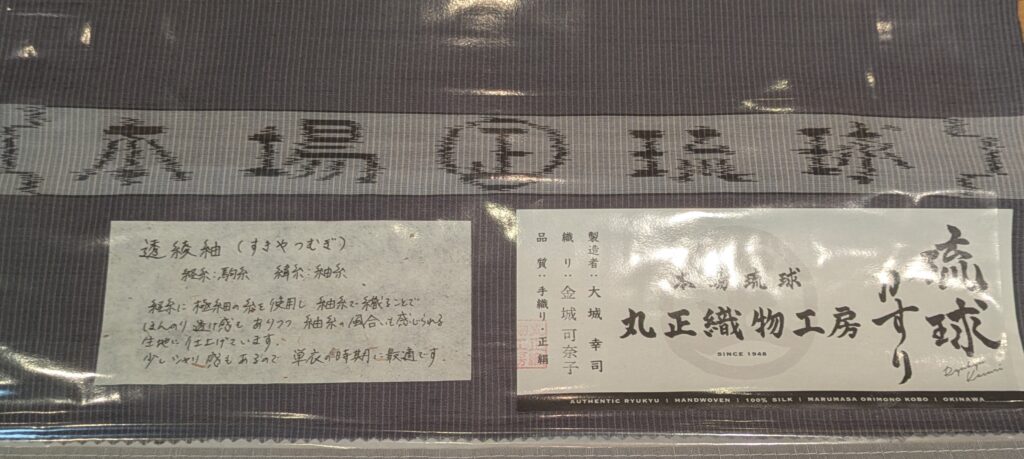 本場 正 琉球
透綾紬（すきやつむぎ）
経糸：駒糸　緯糸：紬糸
経糸に極細の糸を使用し紬糸で織ることで
ほんのり透け感もありつつ 紬糸の風合いも感じられる
生地に仕上げています。
少しシャリ感もあるので 単衣の時期に最適です。
琉球かすり
Ryukyu Kasuri
本場琉球
丸正織物工房
SINCE 1948
製造者：大城 幸司
織り：金城 可奈子
品質：手織り・正絹
AUTHENTIC RYUKYU | HANDWOVEN | 100% SILK | MARUMASA ORIMONO KOBO | OKINAWA